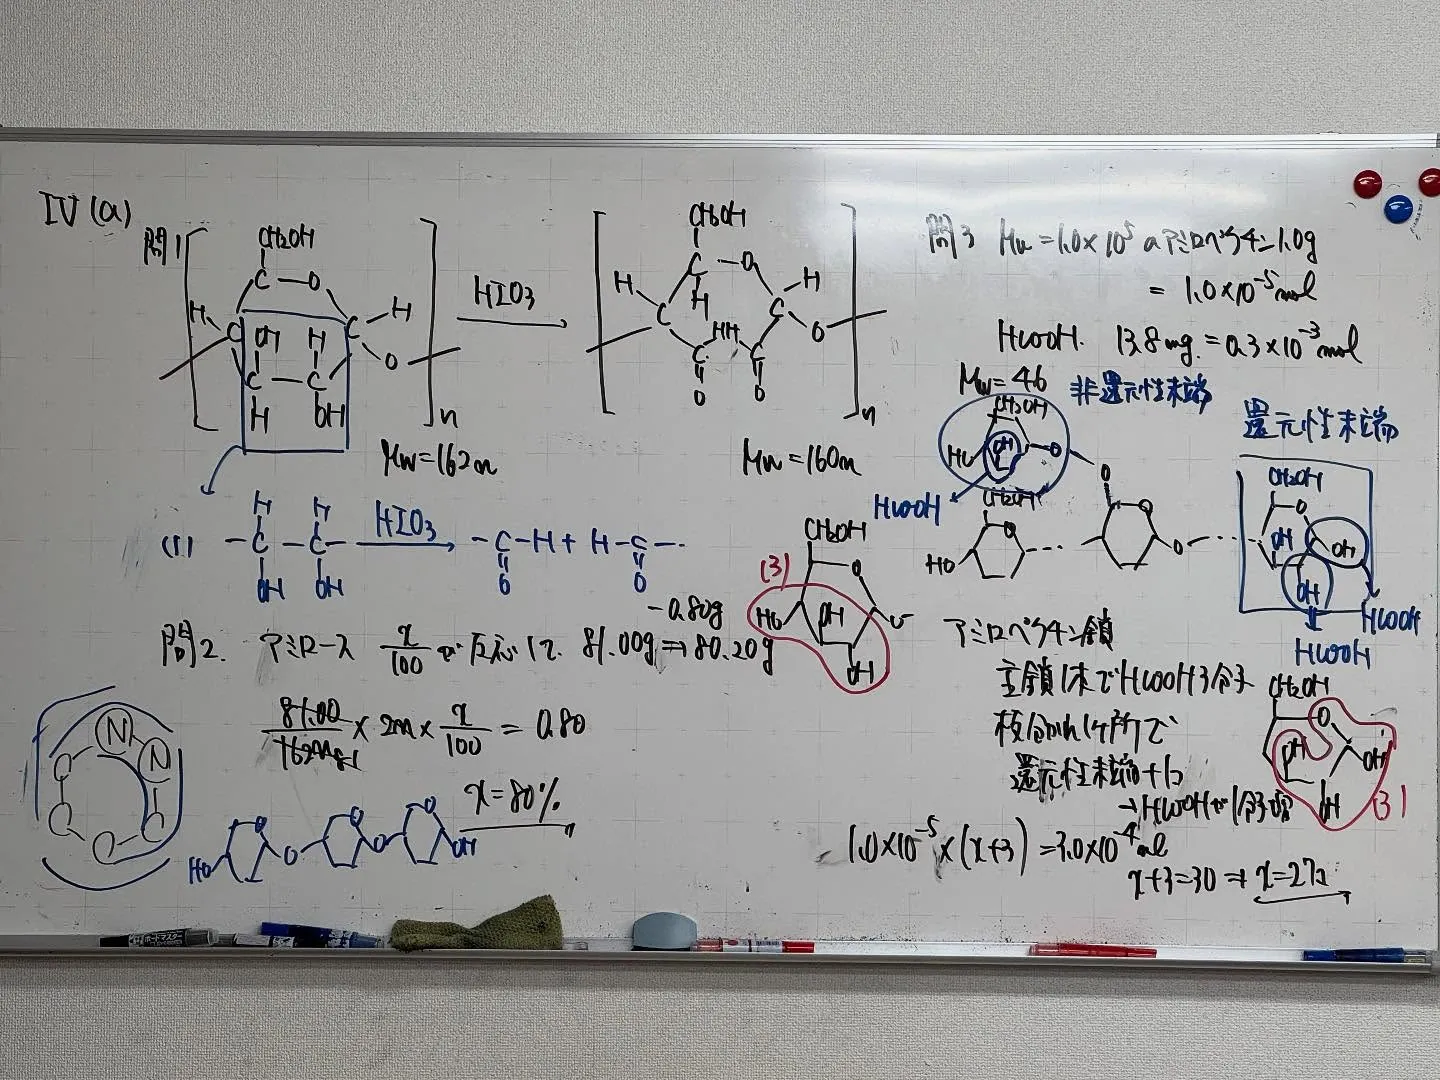 IV (a)
問1
CH2OH
C－O
H
C
OH H
C H
O
C－C
H OH
n
Mw=162n
HIO3
CH2OH
C－O
H
H
C
C H
HH
O
C C
O O
n
Mw=160n
(1)
H H
－C－C－
OH OH
HIO3
－C－H + H－C－
O O
問2. アミロース x/100 が反応して. 81.00g⇒80.20g
－0.80g
81.00/162n × 2n × x/100 = 0.80
x=80%
N
N
HO
O
O
OH
(3)
CH2OH
O
HO
OH
O
OH
問3 Mw=1.0×10⁵のアミロペクチン1.0g
= 1.0×10⁻⁵mol
HCOOH. 13.8mg. = 0.3×10⁻³mol
Mw=46
非還元性末端
還元性末端
CH2OH
HO
OH
O
HCOOH
CH2OH
O
HO
O
O
O
CH2OH
O
OH
OH
OH
HCOOH
HCOOH
アミロペクチン鎖
主鎖1本でHCOOH3分子
枝分かれ1ヶ所で
+1コ
→HCOOHが1分子
CH2OH
O
OH
OH
OH
(3)
1.0×10⁻⁵×(x+3)=3.0×10⁻⁴mol
x+3=30 ⇒ x=27コ
ボードマスター